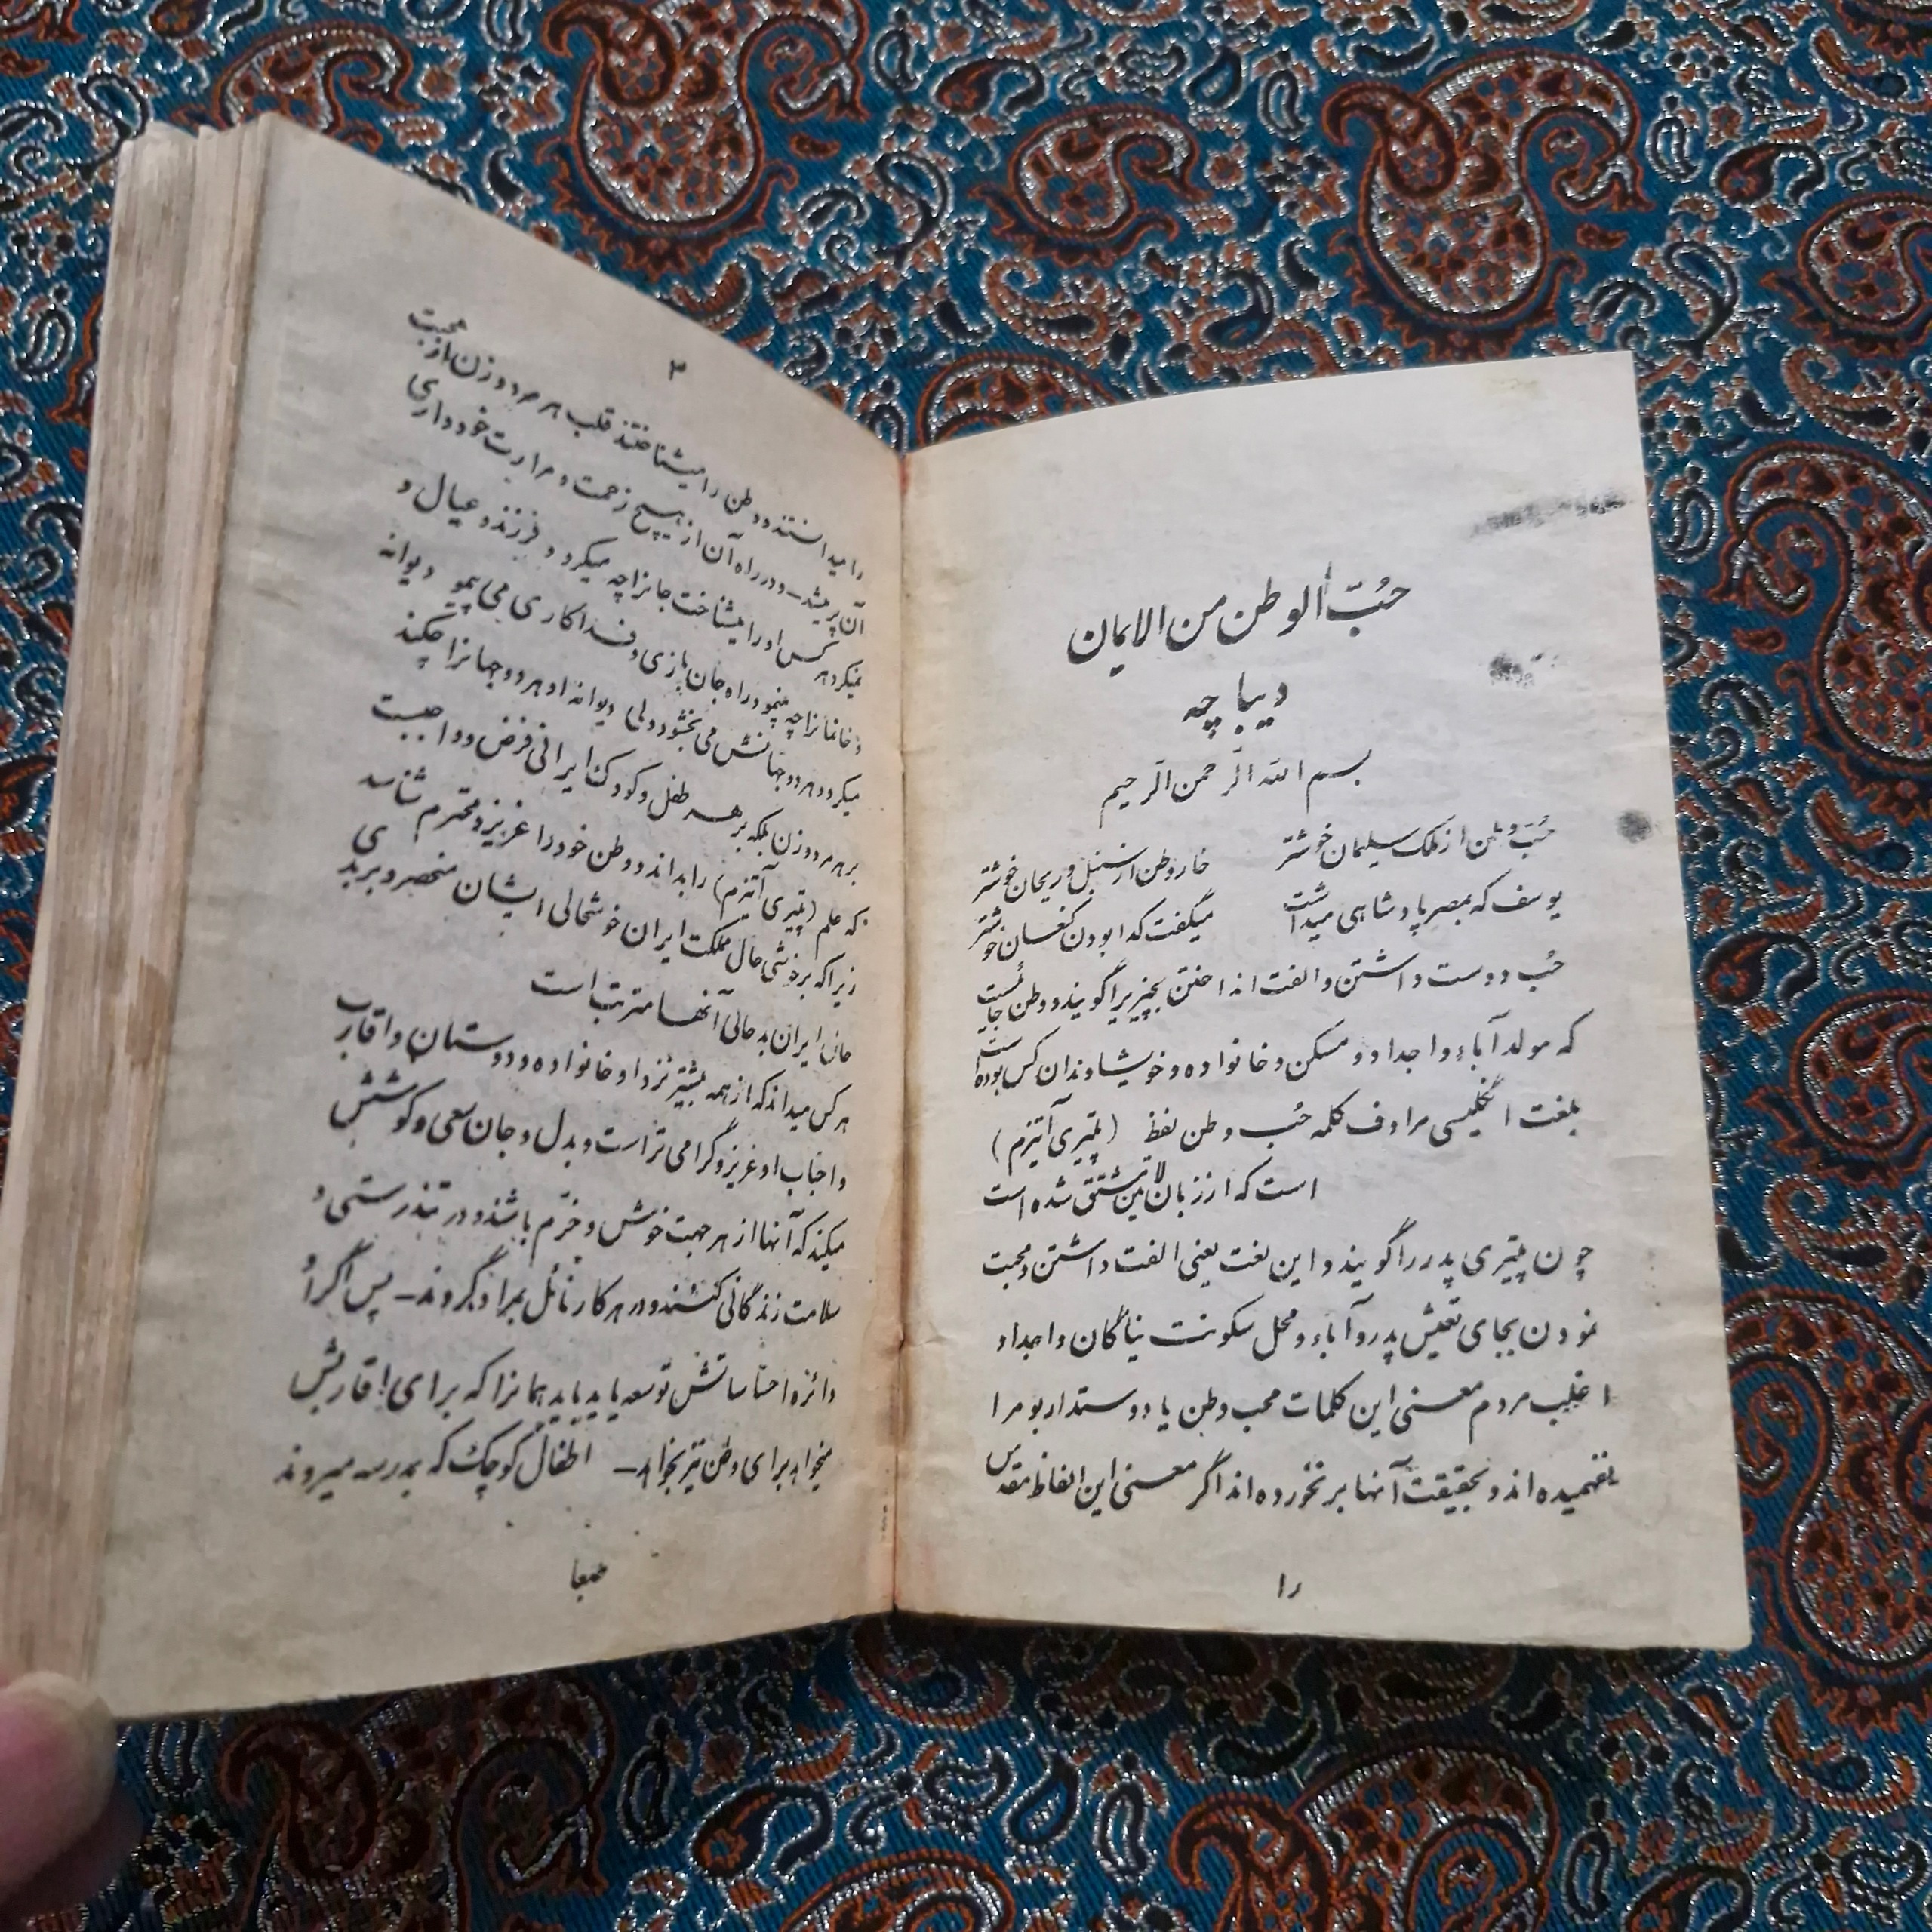 حُبّ الوطن من الایمان
دیباچه
بسم الله الرّحمن الرّحیم
حُبّ وطن از ملک سلیمان خوشتر خار وطن از سنبل و ریحان خوشتر
یوسف که بمصر پادشاهی میداشت میگفت گدا بودن کنعان خوشتر
حُب دوست داشتن و الفت انداختن بچیزیرا گویند و وطن جائیست
که مولد آباء و اجداد و مسکن و خانواده و خویشاوندان کس بوده است
بلغت انگلیسی مرادف کلمه حُب وطن لفظ (پتیری آتیزم)
است که از زبان لاتین مشتق شده است
چون پتیری پدر را گویند و این لغت یعنی الفت داشتن و محبت
نمودن بجای تعیش پدر و آباء و محل سکونت نیاگان و اجداد
اغلب مردم معنی این کلمات محب وطن یا دوستدار بوم را
نفهمیده اند و بحقیقت آنها بر نخورده اند اگر معنی این الفاظ مقدس
را
۲
را میدانستند و وطن را میشناختند قلب هر مرد و زن از محبت
آن پر میشد – و در راه آن از هیچ زحمت و مرارت خود داری
نمیکرد هر کس او را میشناخت جانرا چه میکرد و فرزند و عیال و
خانمانرا چه مینمود در راه جان بازی و فداکاری می پیمود دیوانه
میکرد و هر دو جهانش می بخشود ولی دیوانه او هر دو جهانرا چکند
بر هر مرد و زن بلکه بر هر طفل و کودک ایرانی فرض و واجبست
که علم (پتیری آتیزم) را بداند و وطن خود را عزیز و محترم شناسد
زیرا که بر خوشی حال مملکت ایران خوشحالی ایشان منحصر و بر بدی
حال ایران بد حالی آنها مترتب است
هر کس میداند که از همه بیشتر نزد او خانواده و دوستان و اقارب
و احباب او عزیز و گرامی تر است و بدل و جان سعی و کوشش
میکند که آنها از هر جهت خوش و خرّم باشند و در تندرستی و
سلامت زندگانی کنند و در هر کار نائل بمراد گردند – پس اگر او
دائره احساساتش توسعه یابد باید همانرا که برای اقاربش
میخواهد برای وطن نیز بخواهد – اطفال کوچک که بمدرسه میروند